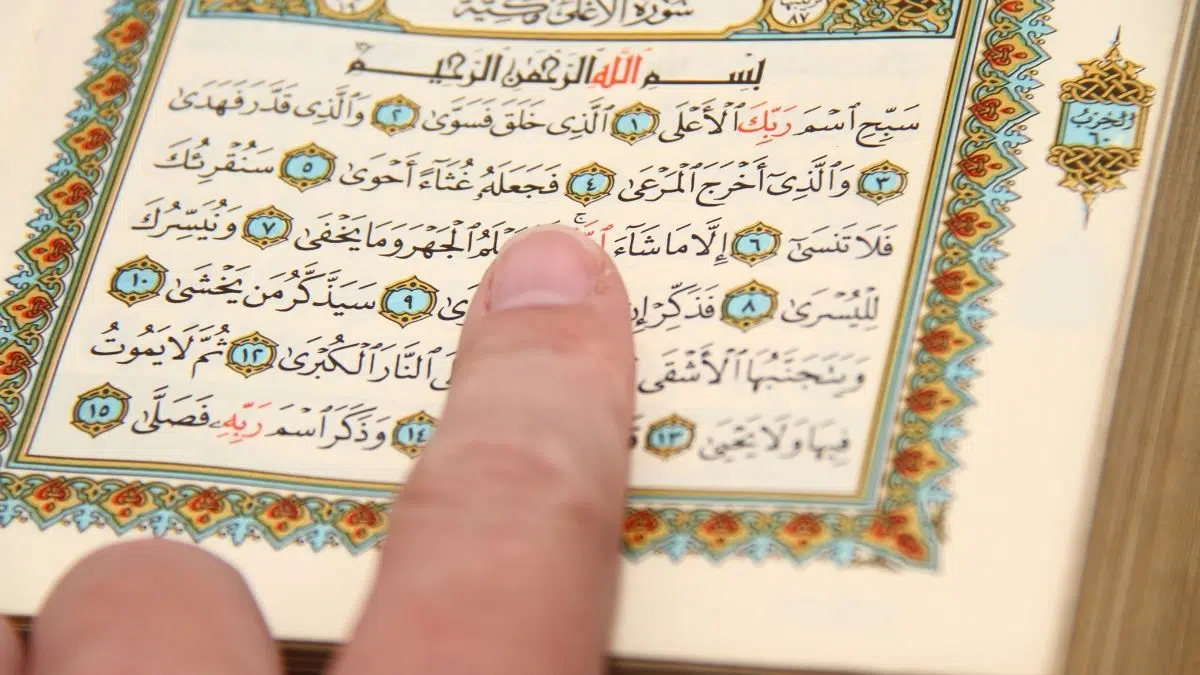 سورة الأعلى مكية
٨٧
بِسْمِ ٱللَّهِ ٱلرَّحْمَٰنِ ٱلرَّحِيمِ
سَبِّحِ ٱسْمَ رَبِّكَ ٱلْأَعْلَى ١ ٱلَّذِى خَلَقَ فَسَوَّىٰ ٢ وَٱلَّذِى قَدَّرَ فَهَدَىٰ
٣ وَٱلَّذِىٓ أَخْرَجَ ٱلْمَرْعَىٰ ٤ فَجَعَلَهُۥ غُثَآءً أَحْوَىٰ ٥ سَنُقْرِئُكَ
فَلَا تَنسَىٰٓ ٦ إِلَّا مَا شَآءَ ٱلْجَهْرَ وَمَا يَخْفَىٰ ٧ وَنُيَسِّرُكَ
لِلْيُسْرَىٰ ٨ فَذَكِّرْ ٩ سَيَذَّكَّرُ مَن يَخْشَىٰ ١٠
وَيَتَجَنَّبُهَا ٱلْأَشْقَى ٱلنَّارَ ٱلْكُبْرَىٰ ١٢ ثُمَّ لَا يَمُوتُ
فِيهَا وَلَا يَحْيَىٰ ١٣ ١٤ وَذَكَرَ ٱسْمَ رَبِّهِۦ فَصَلَّىٰ ١٥
الحزب
٦٠